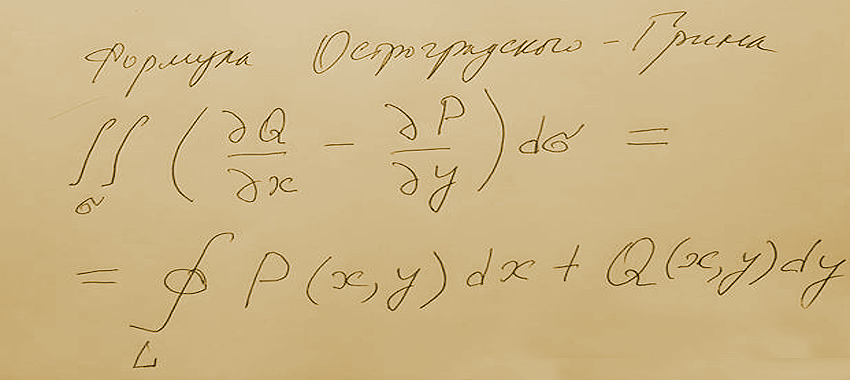 Формула Остроградского - Грина
∬_σ (∂Q/∂x - ∂P/∂y) dσ =
= ∮_L P(x,y)dx + Q(x,y)dy